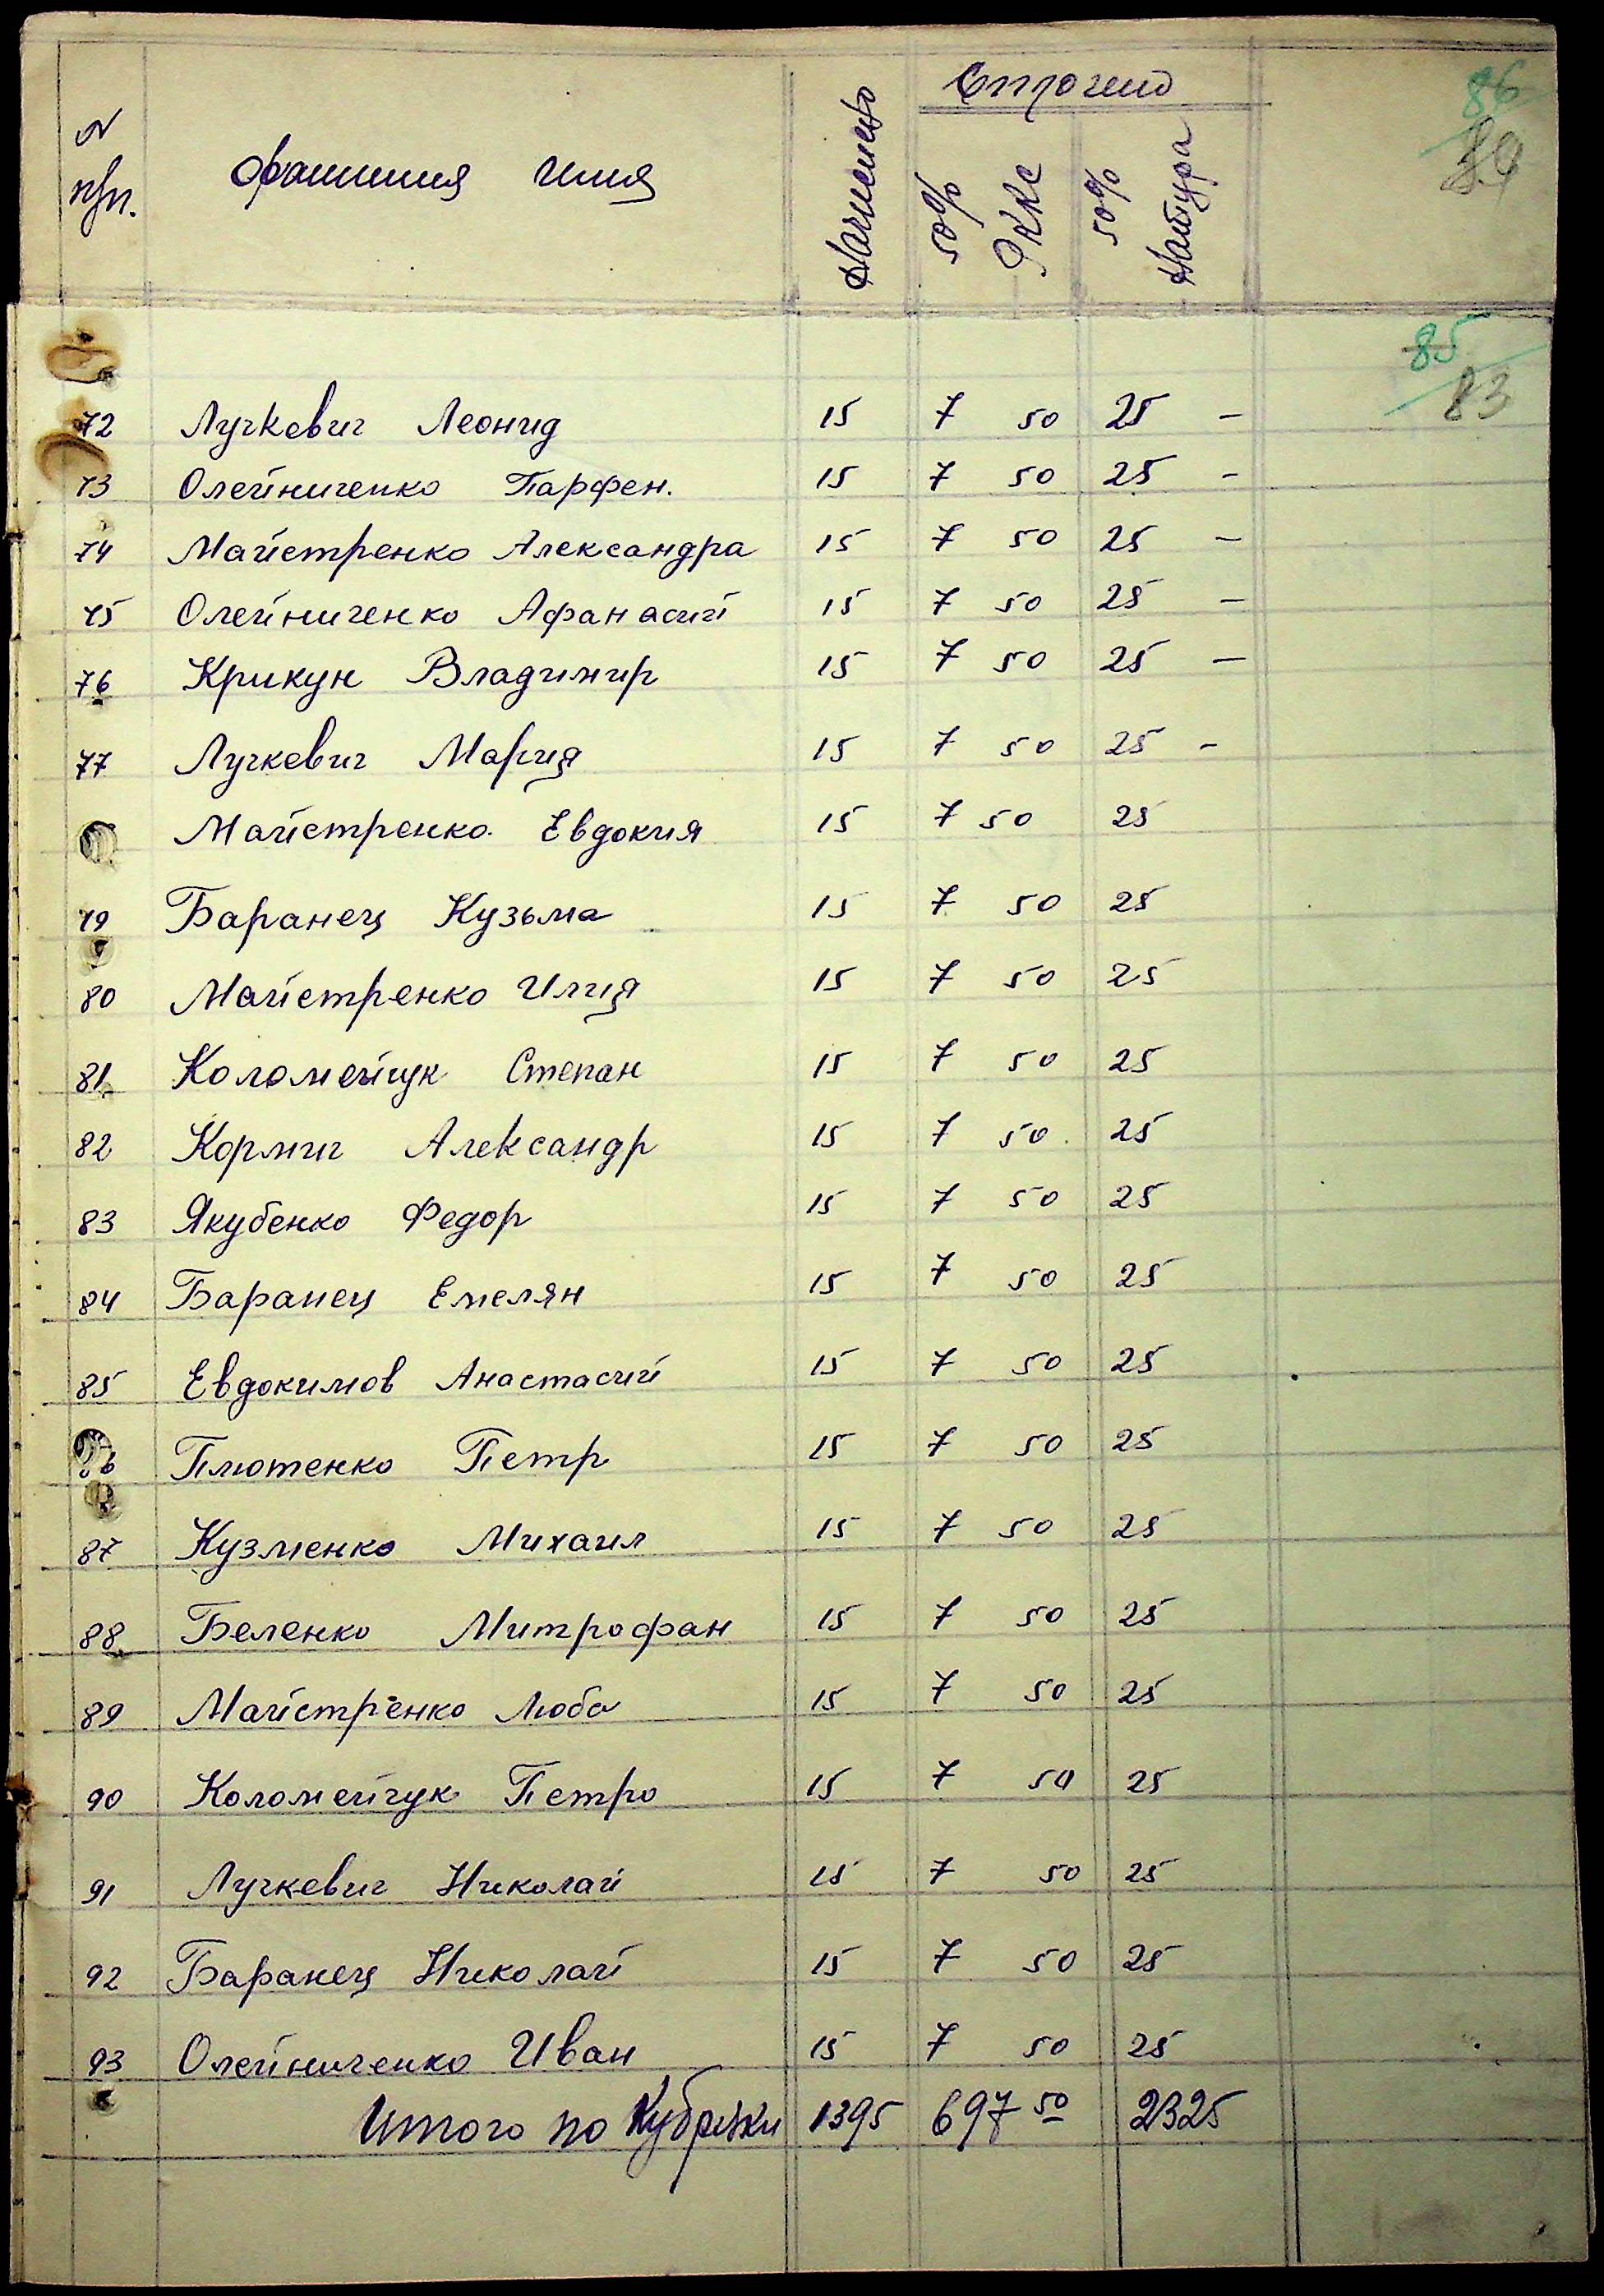 N п/п. Фамилия Имя Начислено Строчено
50% РККС 50% Натура
86
84
85
83
72 Лучкевич Леонид 15 7 50 25 -
73 Олейниченко Парфен. 15 7 50 25 -
74 Майстренко Александра 15 7 50 25 -
75 Олейниченко Афанасий 15 7 50 25 -
76 Крикун Владимир 15 7 50 25 -
77 Лучкевич Мария 15 7 50 25 -
Майстренко Евдокия 15 7 50 25
79 Баранец Кузьма 15 7 50 25
80 Майстренко Илия 15 7 50 25
81 Коломейчук Степан 15 7 50 25
82 Кормич Александр 15 7 50 25
83 Якубенко Федор 15 7 50 25
84 Баранец Емелян 15 7 50 25
85 Евдокимов Анастасий 15 7 50 25
86 Плютенко Петр 15 7 50 25
87 Кузменко Михаил 15 7 50 25
88 Беленко Митрофан 15 7 50 25
89 Майстренко Люба 15 7 50 25
90 Коломейчук Петро 15 7 50 25
91 Лучкевич Николай 15 7 50 25
92 Баранец Николай 15 7 50 25
93 Олейниченко Иван 15 7 50 25
Итого по Кубряжи 1395 697 50 2325